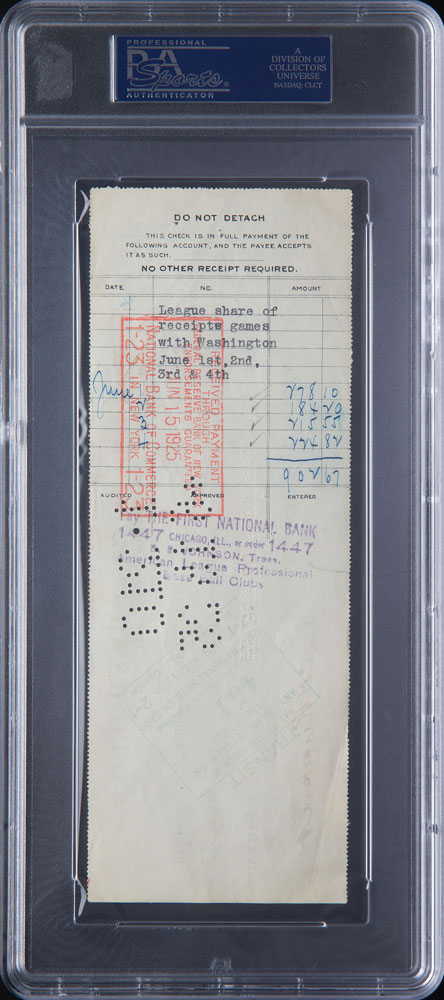 PROFESSIONAL
PSA
Sports
AUTHENTICATOR
A
DIVISION OF
COLLECTORS
UNIVERSE
NASDAQ: CLCT
DO NOT DETACH
THIS CHECK IS IN FULL PAYMENT OF THE
FOLLOWING ACCOUNT, AND THE PAYEE ACCEPTS
IT AS SUCH.
NO OTHER RECEIPT REQUIRED.
DATE NO. AMOUNT
League share of
receipts games
with Washington
June 1st,2nd,
3rd & 4th
June
278 10
184 20
215 55
224 82
902 67
AUDITED APPROVED ENTERED
RECEIVED PAYMENT
THROUGH
FEDERAL RESERVE BANK OF NEW YORK
ENDORSEMENTS GUARANTEED
JUN 15 1925
NATIONAL BANK OF COMMERCE
1-23 IN NEW YORK 1-23
THE FIRST NATIONAL BANK
1447 CHICAGO, ILL., or order 1447
B. B. JOHNSON, Treas.
American League Professional
Base Ball Clubs
TRANSIT